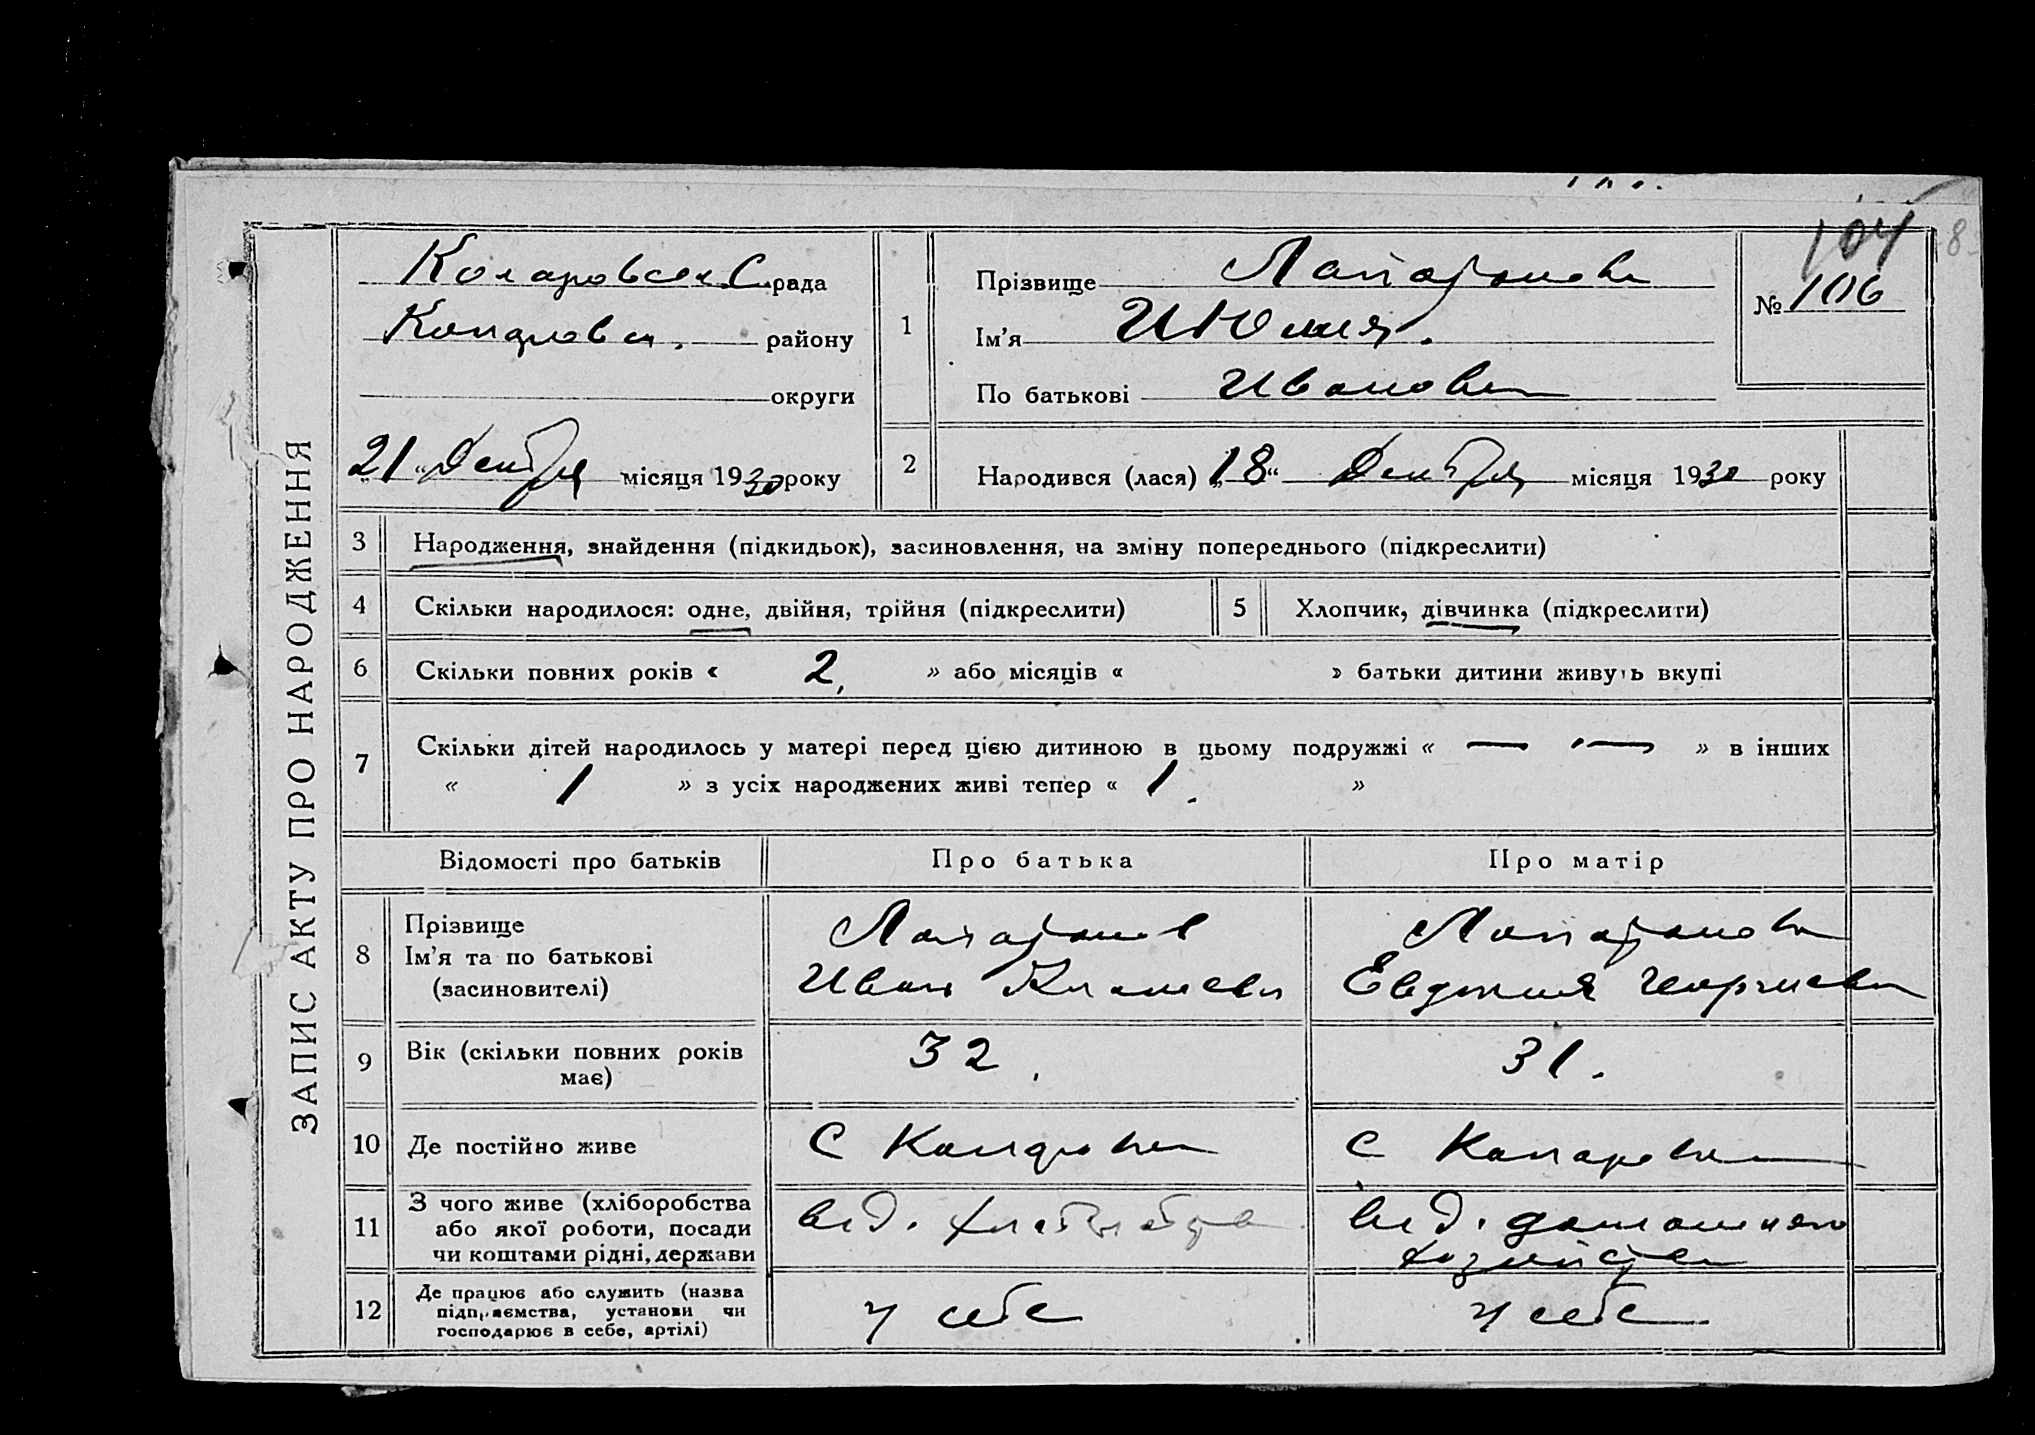 104
8
ЗАПИС АКТУ ПРО НАРОДЖЕННЯ
Коларовск. С. рада
Коларовск. району
округи
21 „Декабря місяця 1930 року
1
Прізвище
Ім'я Июлия.
По батькові Ивановна
№ 106
2
Народився (лася) „18“ Декабря місяця 1930 року
3 Народження, знайдення (підкидьок), засиновлення, на зміну попереднього (підкреслити)
4 Скільки народилося: одне, двійня, трійня (підкреслити)
5 Хлопчик, дівчинка (підкреслити)
6 Скільки повних років « 2, » або місяців « » батьки дитини живуть вкупі
7 Скільки дітей народилось у матері перед цією дитиною в цьому подружжі « — — » в інших
« 1 » з усіх народжених живі тепер « 1. »
Відомості про батьків Про батька Про матір
8 Прізвище
Ім'я та по батькові
(засиновителі)
Иван
Евдокия Георгиевн
9 Вік (скільки повних років
має)
32.
31.
10 Де постійно живе с Коларовка с Коларовка
11 З чого живе (хліборобства
або якої роботи, посади
чи коштами рідні, держави
від. хлеборобства
від. домашнего
хозяйства
12 Де працює або служить (назва
підприємства, установи чи
господарює в себе, артілі)
у себе
у себе